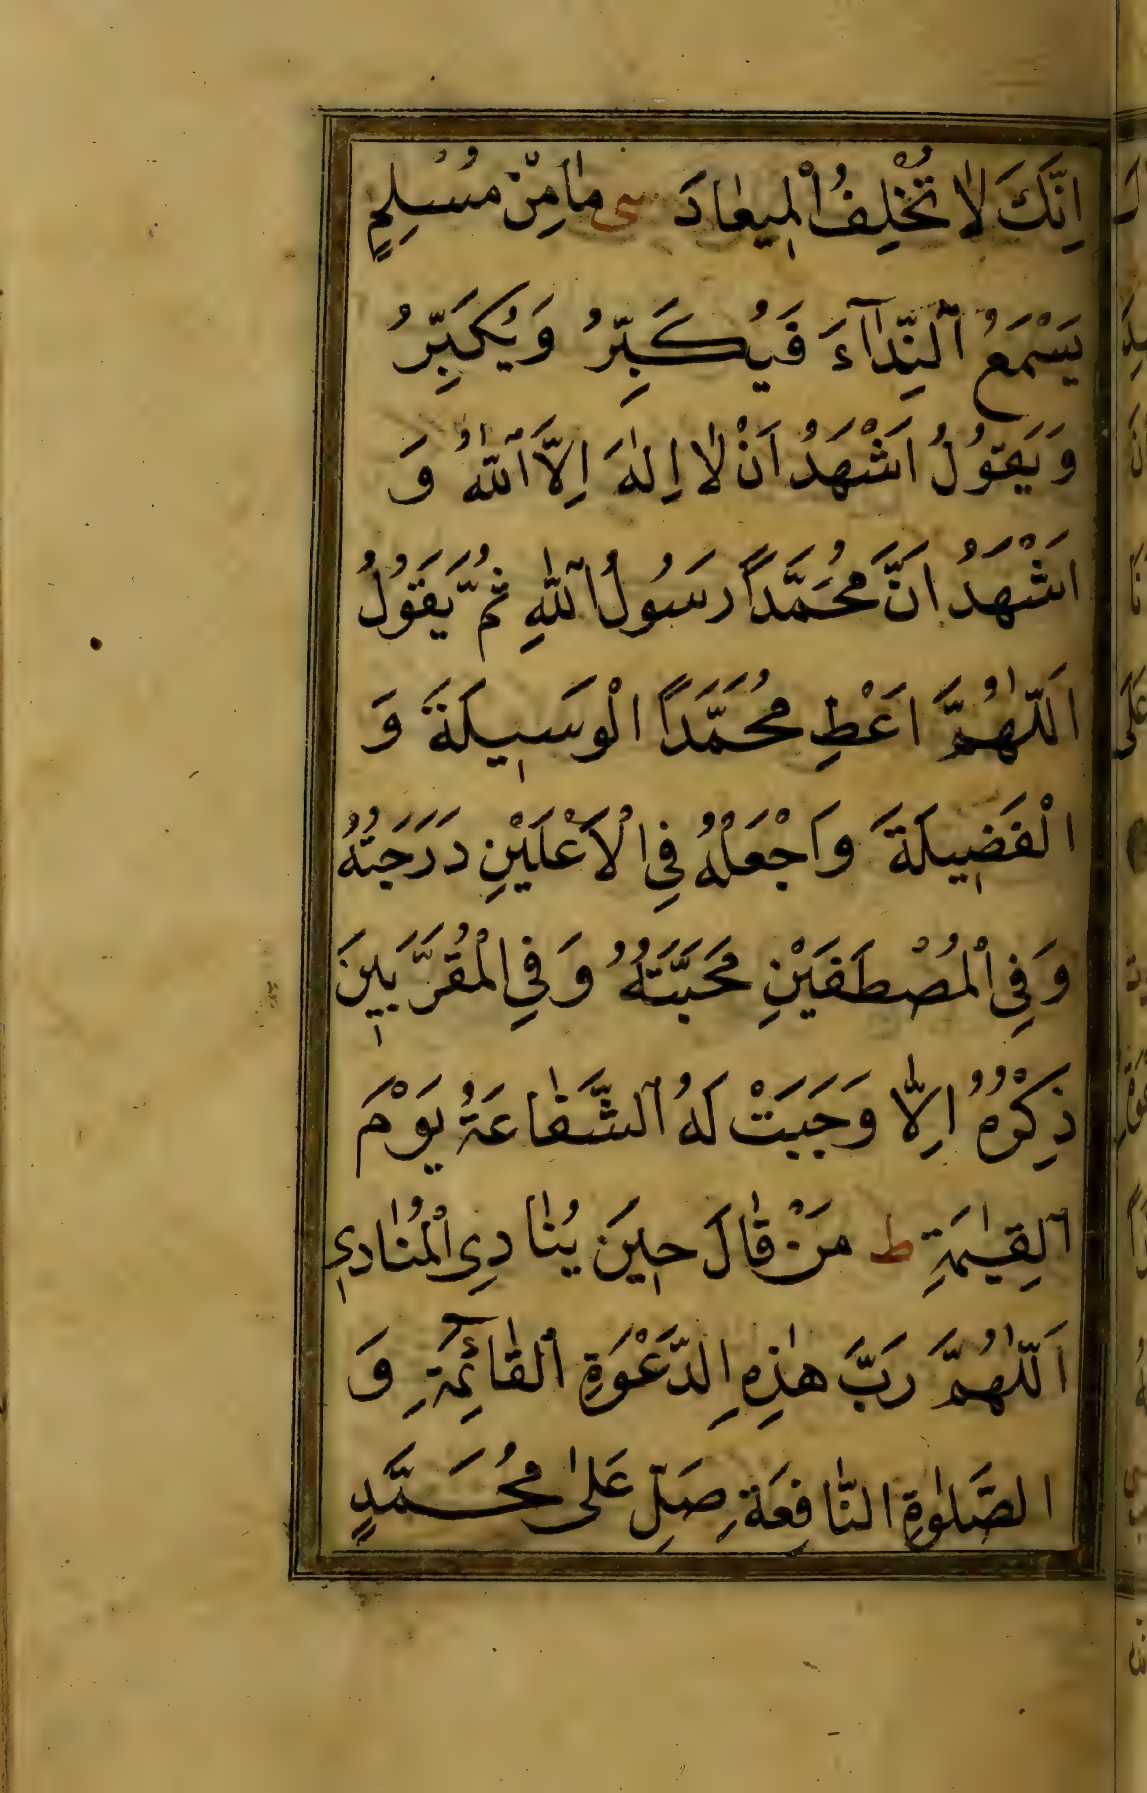 اِنَّكَ لَا تُخْلِفُ الْمِيعَادَ سى مَا مِنْ مُسْلِمٍ
يَسْمَعُ النِّدَآءَ فَيُكَبِّرُ وَيُكَبِّرُ
وَيَقُولُ اَشْهَدُ اَنْ لَا اِلٰهَ اِلَّا اللّٰهُ وَ
اَشْهَدُ اَنَّ مُحَمَّداً رَسُولُ اللّٰهِ ثُمَّ يَقُولُ
اَللّٰهُمَّ اَعْطِ مُحَمَّداً الْوَسِيلَةَ وَ
الْفَضِيلَةَ وَاجْعَلْهُ فِي الْاَعْلَيْنِ دَرَجَتُهُ
وَفِي الْمُصْطَفَيْنِ مَحَبَّتُهُ وَفِي الْمُقَرَّبِينَ
ذِكْرُهُ اِلَّا وَجَبَتْ لَهُ الشَّفَاعَةُ يَوْمَ
الْقِيٰمَةِ ط مَنْ قَالَ حِينَ يُنَادِي الْمُنَادِي
اَللّٰهُمَّ رَبَّ هٰذِهِ الدَّعْوَةِ الْقَائِمَةِ وَ
الصَّلٰوةِ النَّافِعَةِ صَلِّ عَلٰى مُحَمَّدٍ